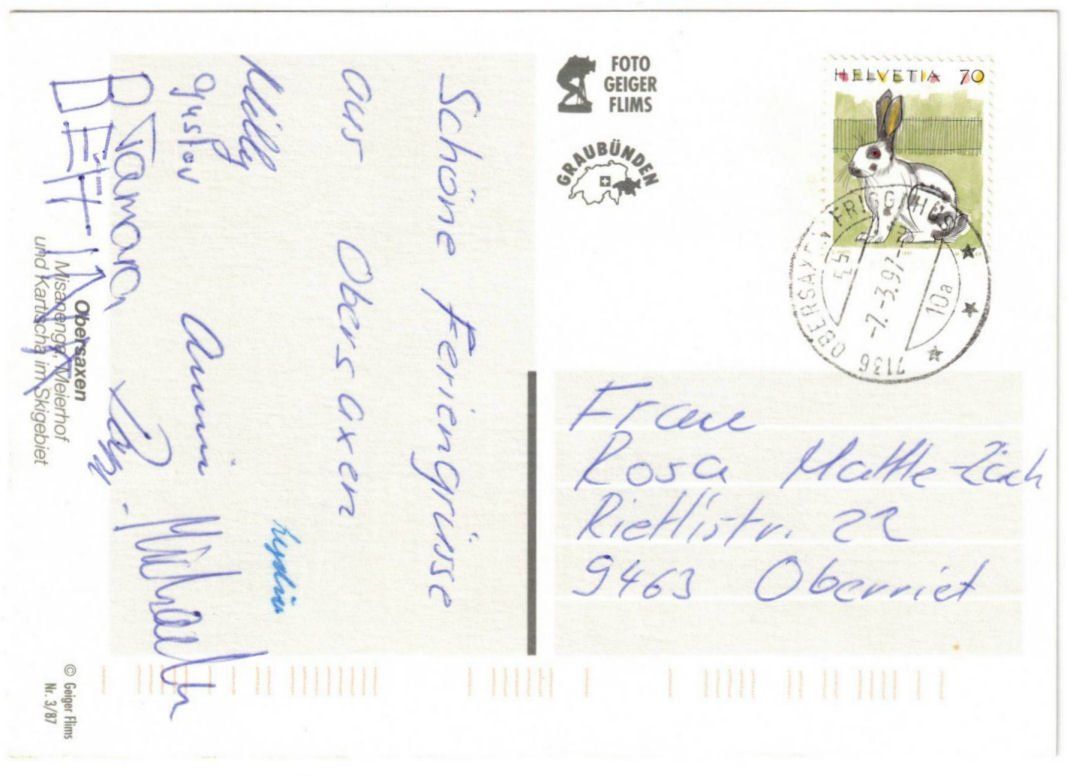 Schöne Feriengrüsse
aus Obersaxen
Milly
Lydia
Gustav
Anni
Michael
Tamara
BEAT
Obersaxen
Misanenga, Meierhof
und Kartitscha im Skigebiet
© Geiger Flims
Nr. 3/87
FOTO
GEIGER
FLIMS
GRAUBÜNDEN
HELVETIA 70
7136 OBERSAXEN
-7.-3.97-
10a
Frau
Rosa Mattle-Zäch
Rietlistr. 22
9463 Oberriet